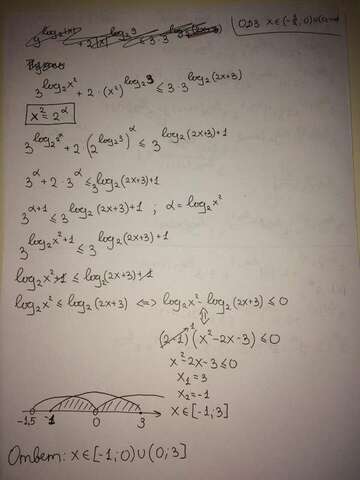 ОДЗ x∈(-3/2, 0)∪(0;
3^(log₂x²) + 2·(x²)^(log₂3) ≤ 3·3^(log₂(2x+3))
x² = 2^α
3^(log₂2^α) + 2·(2^(log₂3))^α ≤ 3^(log₂(2x+3)+1)
3^α + 2·3^α ≤ 3^(log₂(2x+3)+1)
3^(α+1) ≤ 3^(log₂(2x+3)+1) ; α = log₂x²
3^(log₂x²+1) ≤ 3^(log₂(2x+3)+1)
log₂x²+1 ≤ log₂(2x+3)+1
log₂x² ≤ log₂(2x+3) <=> log₂x² - log₂(2x+3) ≤ 0
⇕
(2-1)(x²-2x-3) ≤ 0
x²-2x-3 ≤ 0
x₁ = 3
x₂ = -1
-1,5 -1 0 3 x∈[-1;3]
Ответ: x∈[-1;0)∪(0;3]